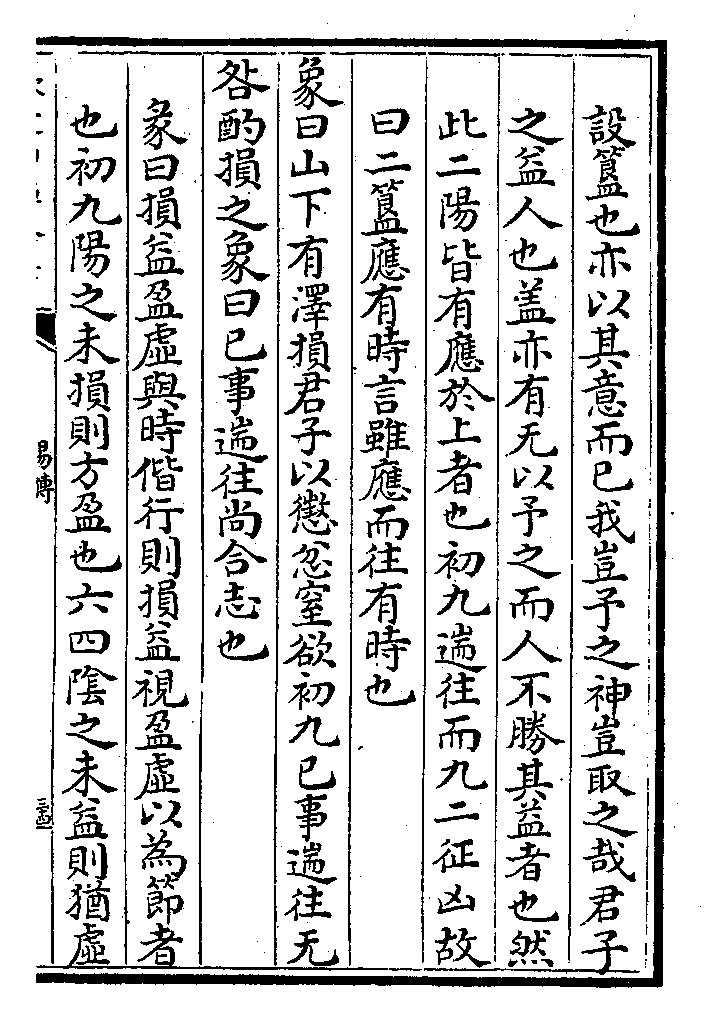 設簋也亦以其意而已我豈予之神豈取之哉君子
之益人也盖亦有无以予之而人不勝其益者也然
此二陽皆有應於上者也初九遄往而九二征凶故
曰二簋應有時言雖應而往有時也
象曰山下有澤損君子以懲忿窒欲初九已事遄往无
咎酌損之象曰已事遄往尚合志也
彖曰損益盈虛與時偕行則損益視盈虛以為節者
也初九陽之未損則方盈也六四陰之未益則猶虛
易傳